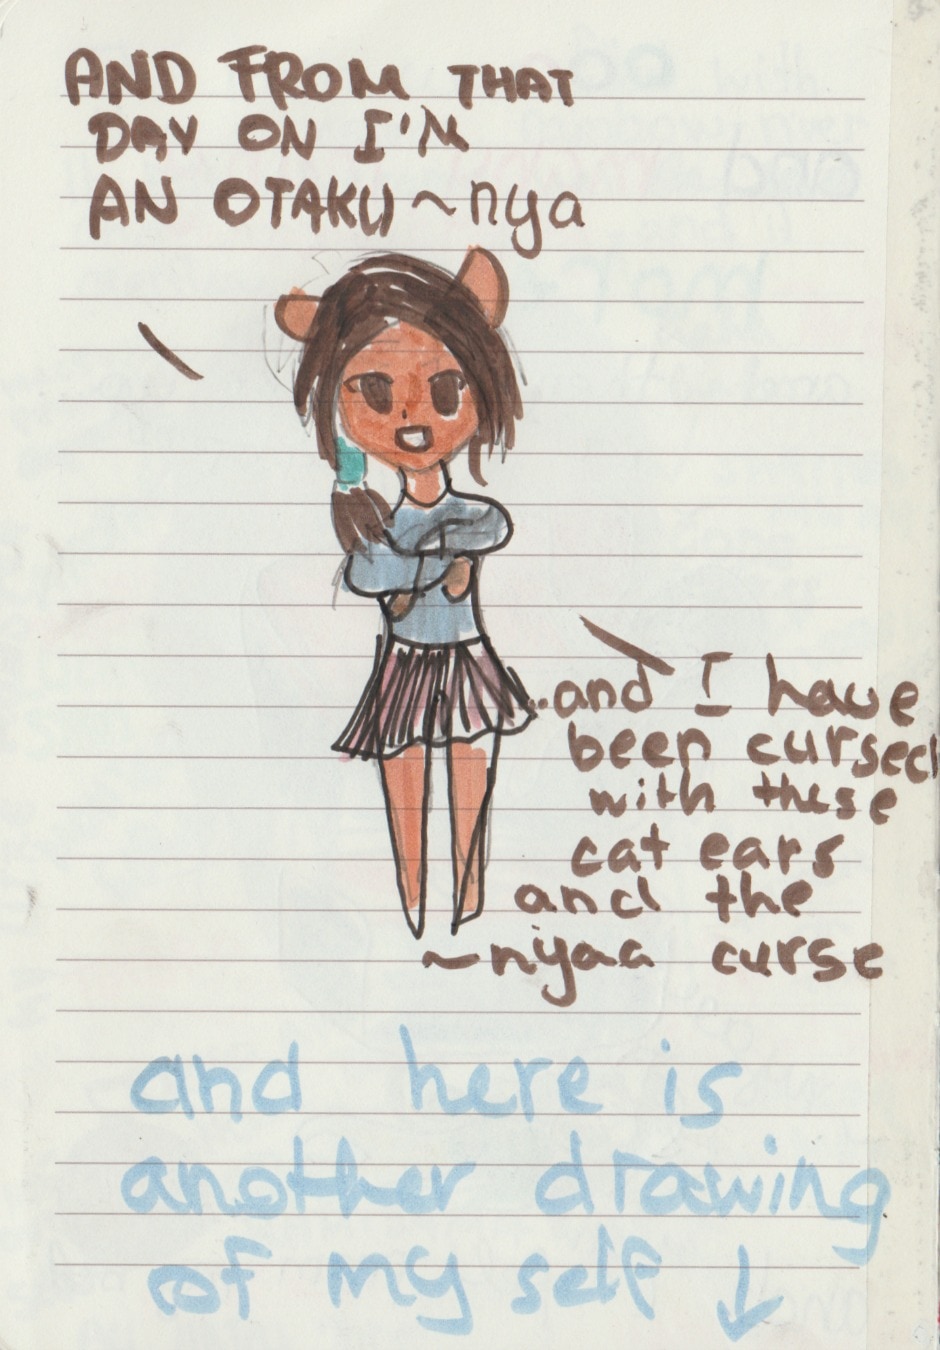 AND FROM THAT
DAY ON I'M
AN OTAKU ~nya
...and I have
been cursed
with these
cat ears
and the
~nyaa curse
and here is
another drawing
of my self ↓